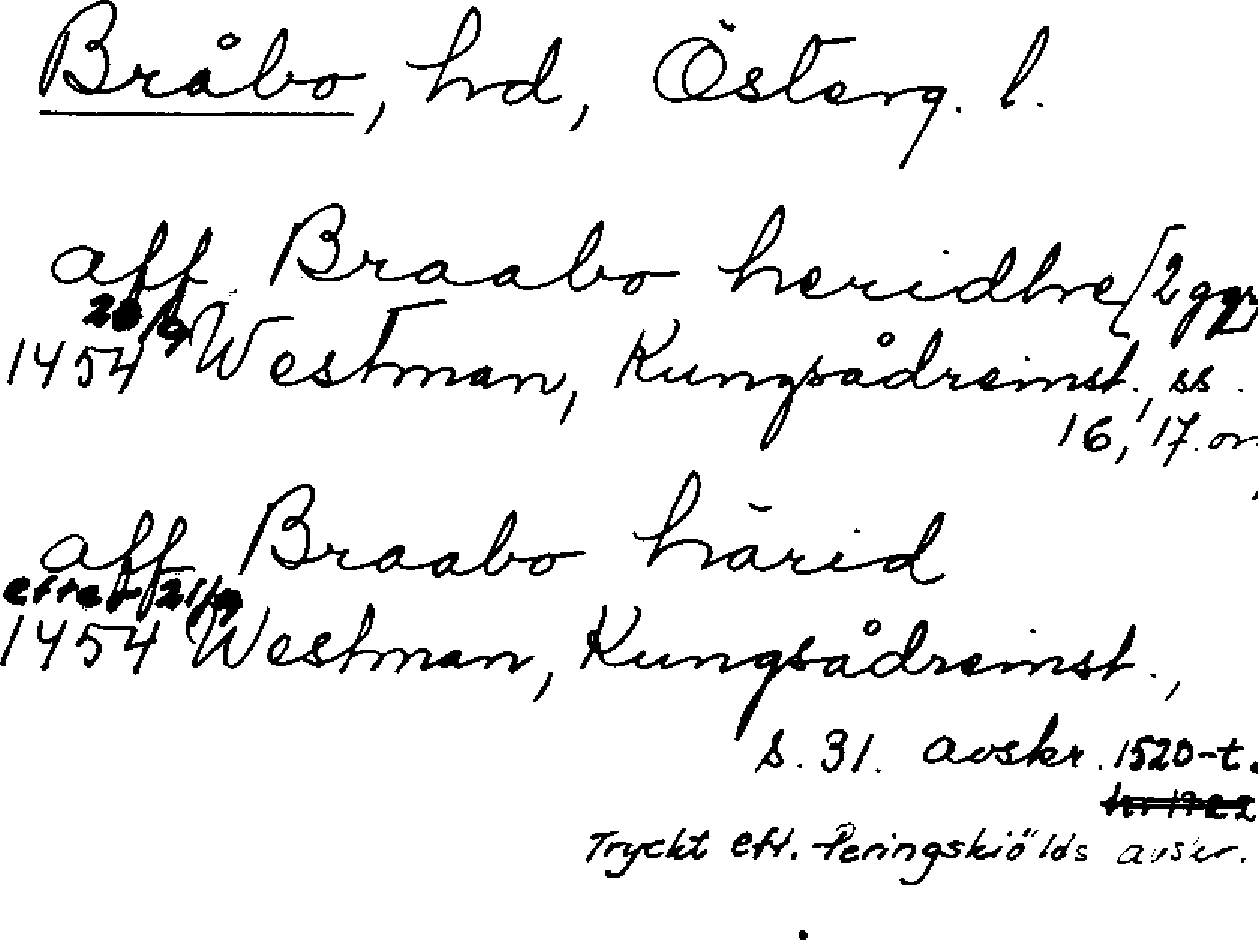 Bråbo, hd, Österg. l.
aff Braabo heridhe [2 ggr]
26/9
1454 Westman, Kungsådreinst., ss.
16, 17. or
aff Braabo härid
efter 21/9
1454 Westman, Kungsådreinst.,
s. 31. avskr. 1520-t.
Tryckt eft. Peringskiölds avskr.